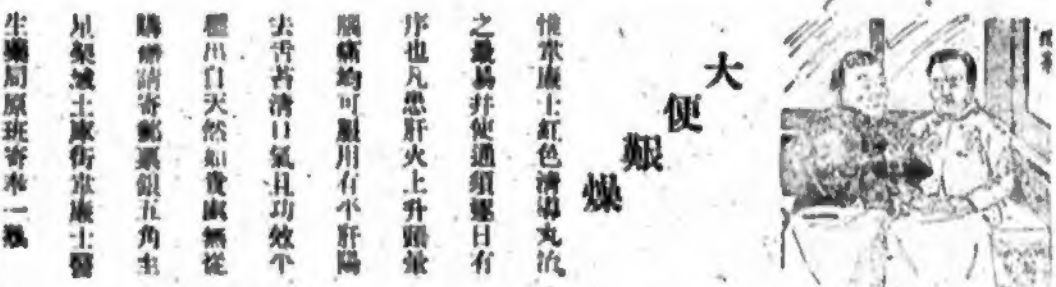 大便艱燥
惟韋廉士紅色清導丸治
之最易幷使通須逐日有
序也凡患肝火上升頭暈
腦痛均可服用有平肝陽
去舌苔清口氣且功效平
穩出自天然如貴處無從
購辦請寄郵票銀五角
星架坡土庫街韋廉士醫
生藥局原班寄奉一瓶